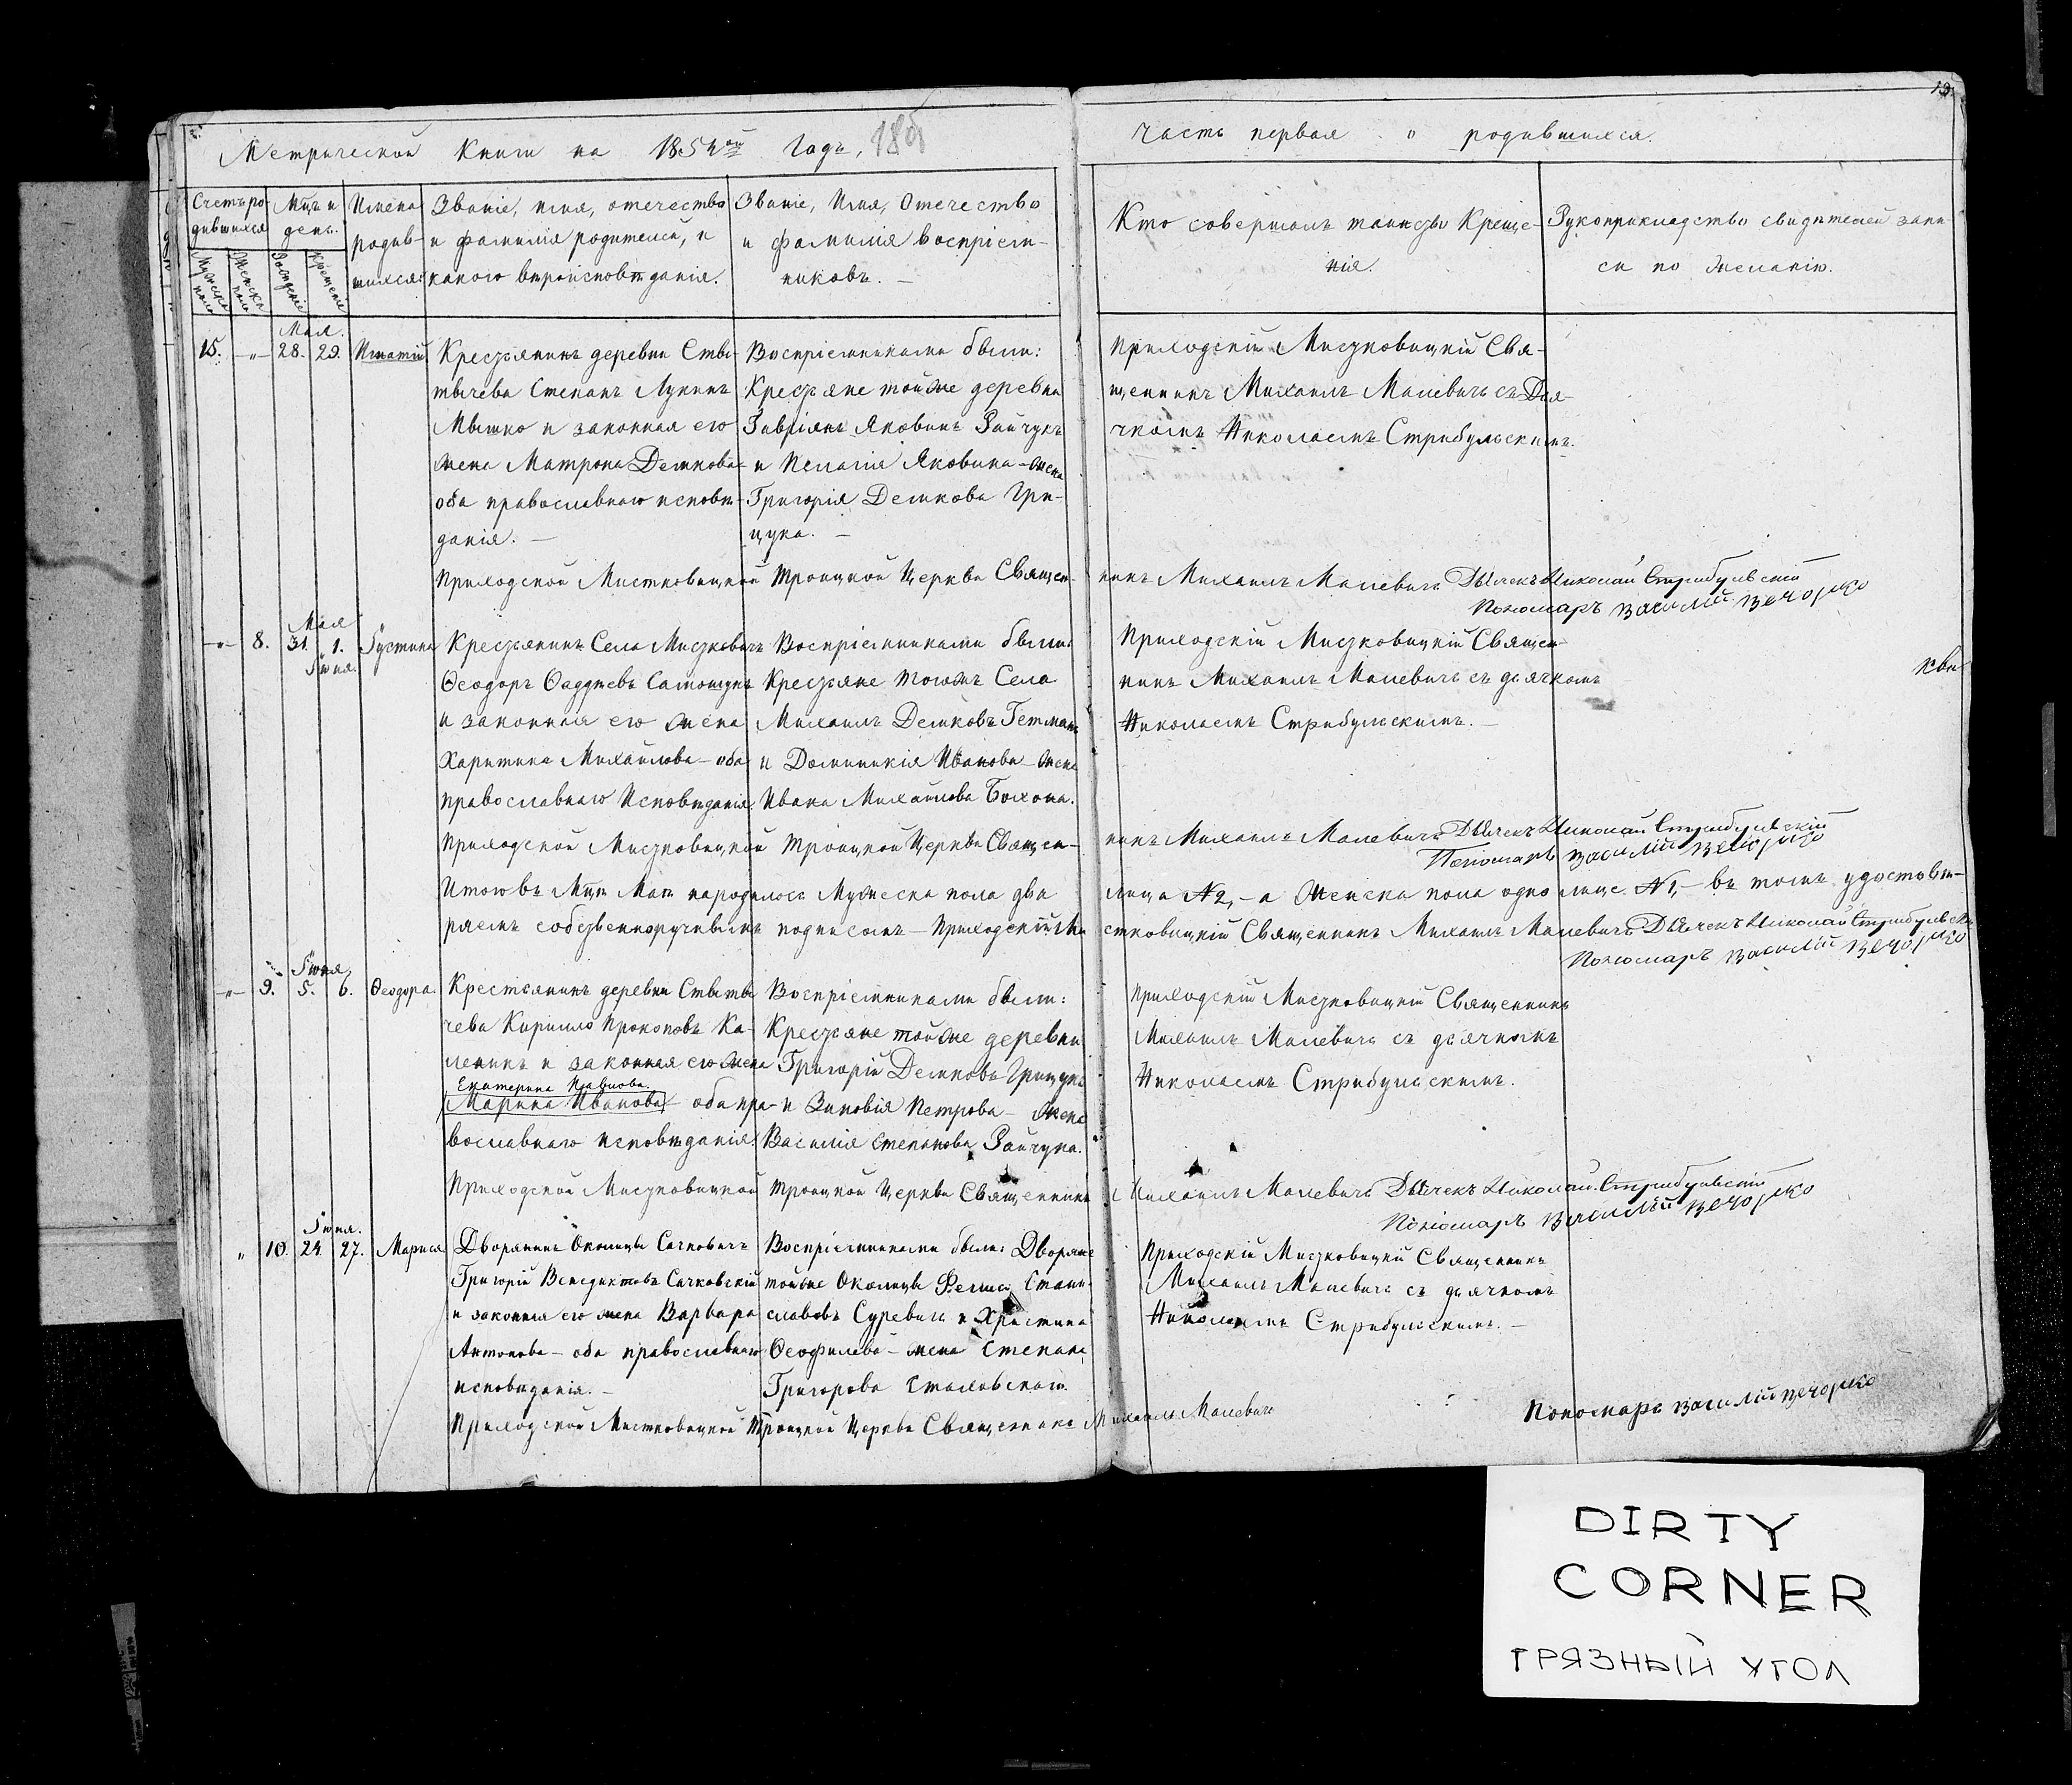 Метрической Книги на 1854ой Годъ,
Часть первая о родившихся.
19.
Счетъ ро-
дившихся
Мцъ и
день.
Имена
родив-
шихся.
Званіе, имя, отечество
и фамилія родителей, и
какого вѣроисповѣданія.
Званіе, Имя, Отечество
и фамилія воспріем-
никовъ. —
Кто совершалъ таинство Креще-
нія.
Рукоприкладство свидѣтелей запи-
си по желанію.
Мужеска пола
Женска пола
Рожденіе
Крещеніе
Мая.
15. —„— 28. 29. Игнатій
Крестьянинъ деревни Ствы-
тычева Степанъ Лукинъ
Мышко и законная его
жена Матрона Демкова
оба православнаго исповѣ-
данія. —
Воспріемниками были:
Крестьяне той же деревни
Гавріилъ Яковинъ Зайчукъ
и Пелагія Яковина — жена
Григорія Демкова Гри-
цука. —
Приходскій Мистковицкій Свя-
щенникъ Михаилъ Малевичъ съ Дья-
чкомъ Николаемъ Стрибульскимъ.
Приходской Мистковицкой Троицкой Церкви Священ-
никъ Михаилъ Малевичъ Дьячекъ Николай Стрибульскій
Пономаръ Василій Вечорко
Мая
—„— 8. 31. 1. Іустина
Іюня.
Крестьянинъ Села Мистковичъ
Ѳеодоръ Ѳаддѣевъ Сатошукъ
и законная его жена
Харитина Михайлова — оба
православнаго Исповѣданія.
Воспріемниками были:
Крестьяне тогожъ Села
Михаилъ Демковъ Гетманъ
и Доминикія Иванова — жена
Ивана Михайлова Болона.
Приходскій Мистковицкій Священ-
никъ Михаилъ Малевичъ съ дьячкомъ
Николаемъ Стрибульскимъ. —
Кви-
Приходской Мистковицкой Троицкой Церкви Священ-
никъ Михаилъ Малевичъ Дьячекъ Николай Стрибульскій
Пономаръ Василій Вечорко
Итого въ Мцѣ Маѣ народилось Мужеска пола два лица № 2, — а Женска пола одно лице № 1, — въ томъ удостовѣ-
ряемъ собственноручнымъ подписомъ — Приходскій Ми-
стковицкій Священникъ Михаилъ Малевичъ Дьячекъ Николай Стрибульскій
Пономаръ Василій Вечорко
Іюня
—„— 9. 5. 6. Ѳеодора.
Крестьянинъ деревни Ствыты-
чева Кирилло Прокоповъ Ка-
леникъ и законная его жена
Екатерина Павлова.
Марина Иванова — оба пра-
вославнаго исповѣданія.
Воспріемниками были:
Крестьяне той же деревни
Григорій Демковъ Грицукъ
и Зиновія Петрова — жена
Василія Степанова Зайчука.
Приходскій Мистковицкій Священникъ
Михаилъ Малевичъ съ дьячкомъ
Николаемъ Стрибульскимъ.
Приходской Мистковицкой Троицкой Церкви Священникъ
Михаилъ Малевичъ Дьячекъ Николай Стрибульскій
Пономаръ Василій Вечорко
Іюня.
„ 10. 24. 27. Марія
Дворянинъ Околицы Сачковичъ
Григорій Венедиктовъ Сачковскій
и законная его жена Варвара
Антонова — оба православнаго
исповѣданія. —
Воспріемниками были: Дворяне
той же Околицы Станис-
славовъ Суревичъ и Христина
Ѳеофилева — жена Степана
Григорова
Приходскій Мистковицкій Священникъ
Михаилъ Малевичъ съ дьячкомъ
Николаемъ Стрибульскимъ. —
Приходской Мистковицкой Троицкой Церкви Священникъ Михаилъ Малевичъ
Пономаръ Василій Вечорко
DIRTY
CORNER
ГРЯЗНЫЙ УГОЛ